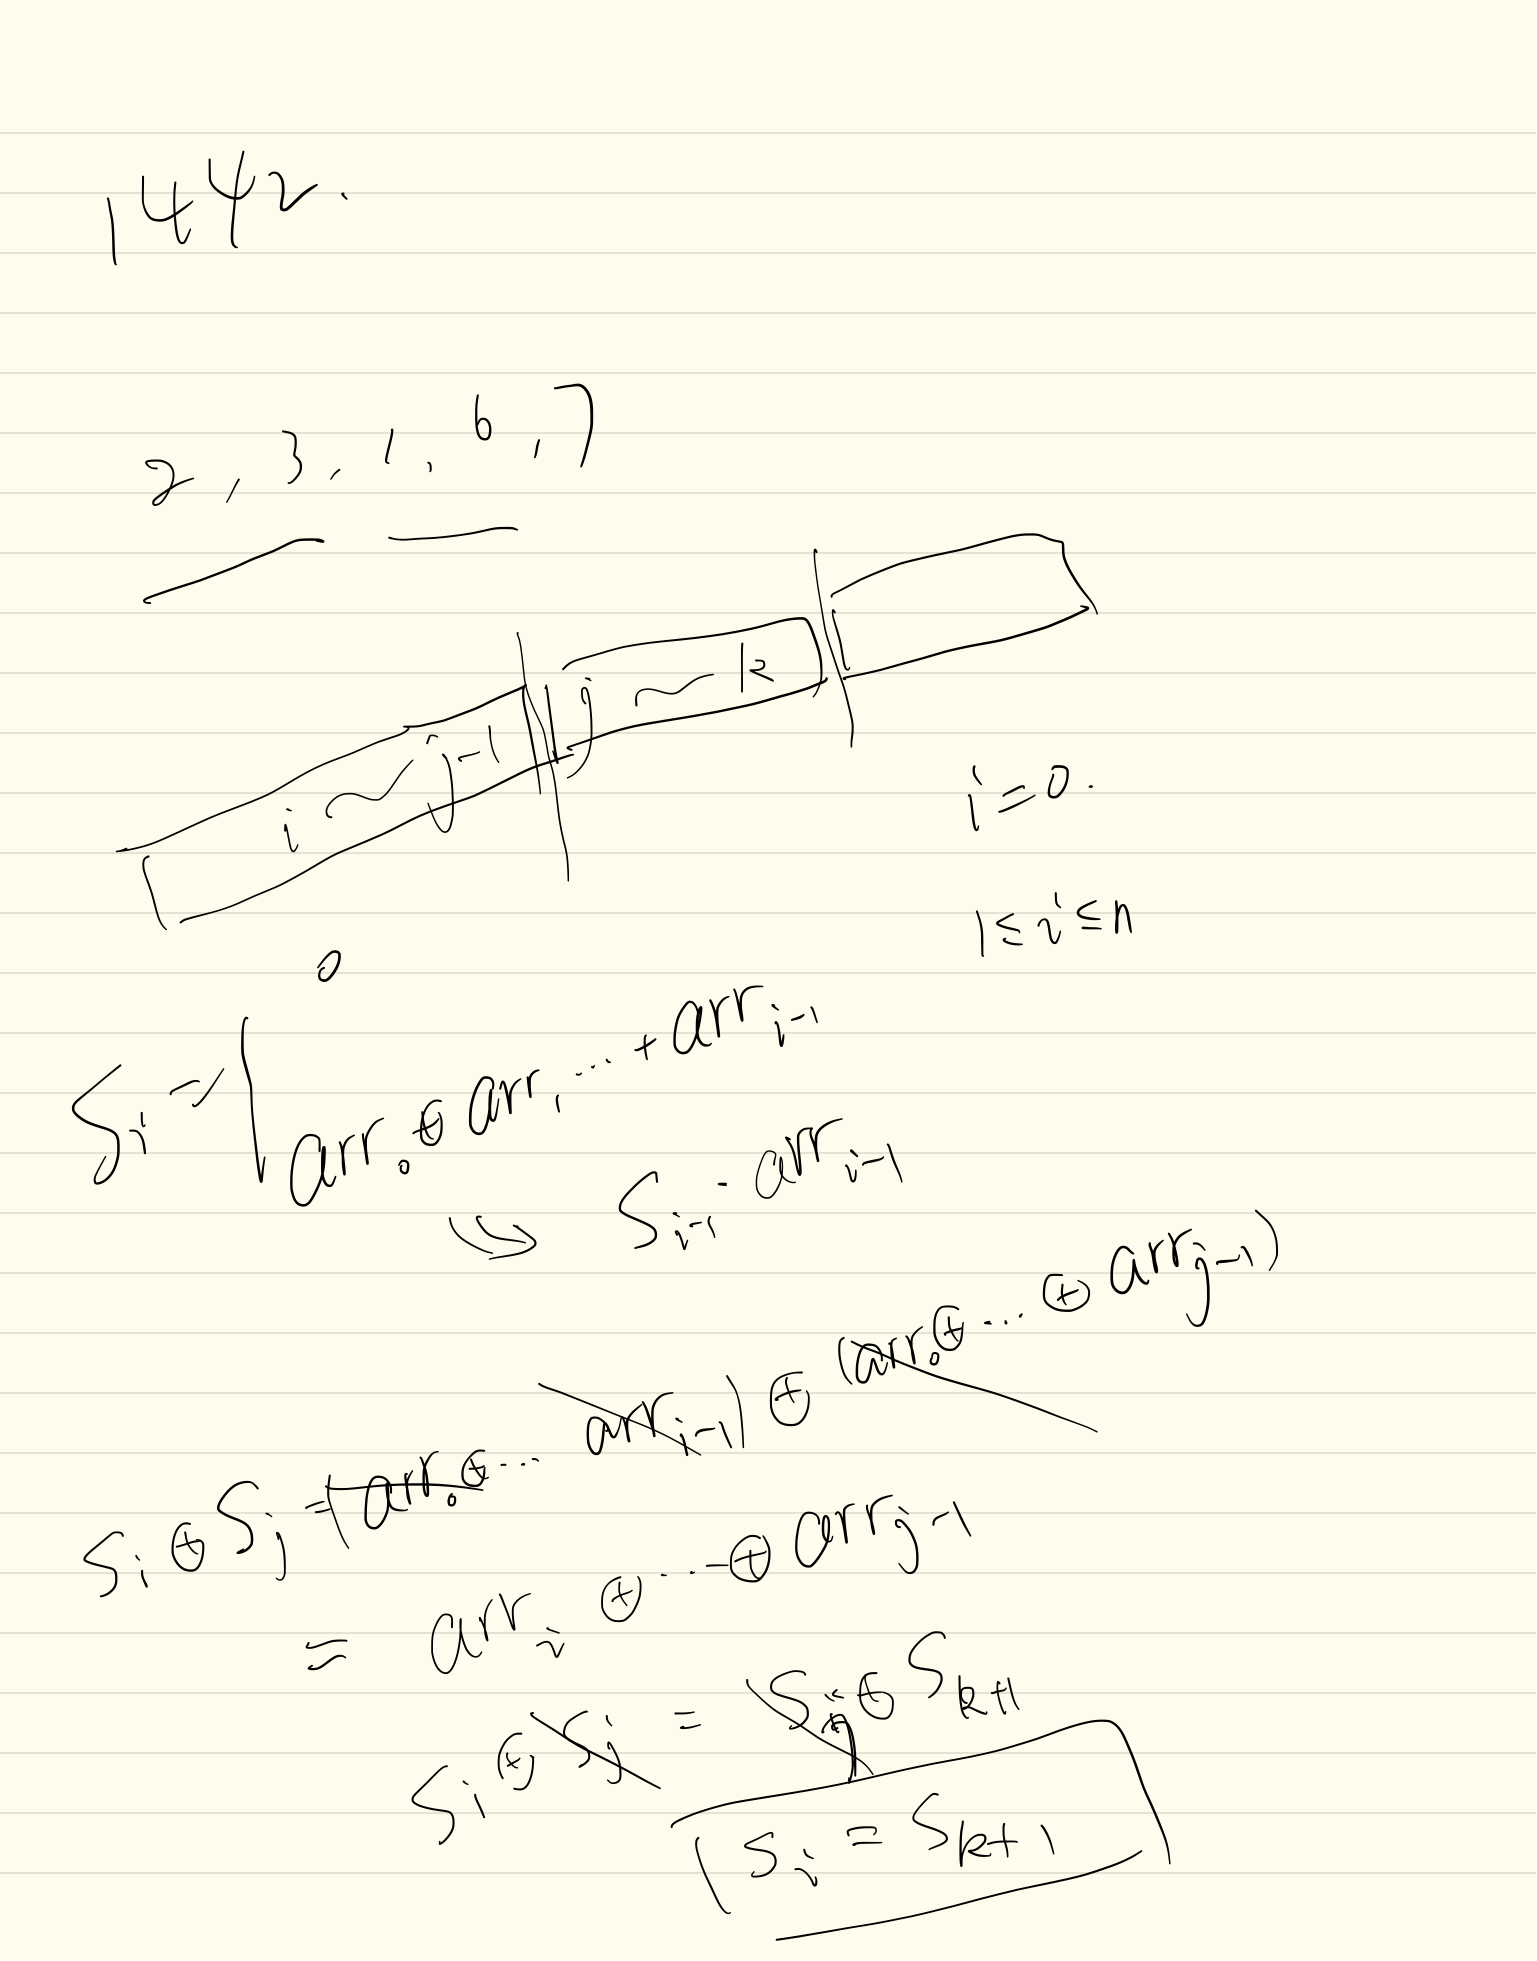 1442.
2, 3, 1, 6, 7
i ~ j-1 j ~ k
i = 0.
1 ≤ i ≤ n
0
S_i = { arr_0 ⊕ arr_1 ... + arr_{i-1}
↘ S_{i-1} · arr_{i-1}
S_i ⊕ S_j = (arr_0 ⊕ ... arr_{i-1}) ⊕ (arr_0 ⊕ ... ⊕ arr_{j-1})
= arr_i ⊕ ... ⊕ arr_{j-1}
S_i ⊕ S_j = S_j ⊕ S_{k+1}
S_i = S_{k+1}